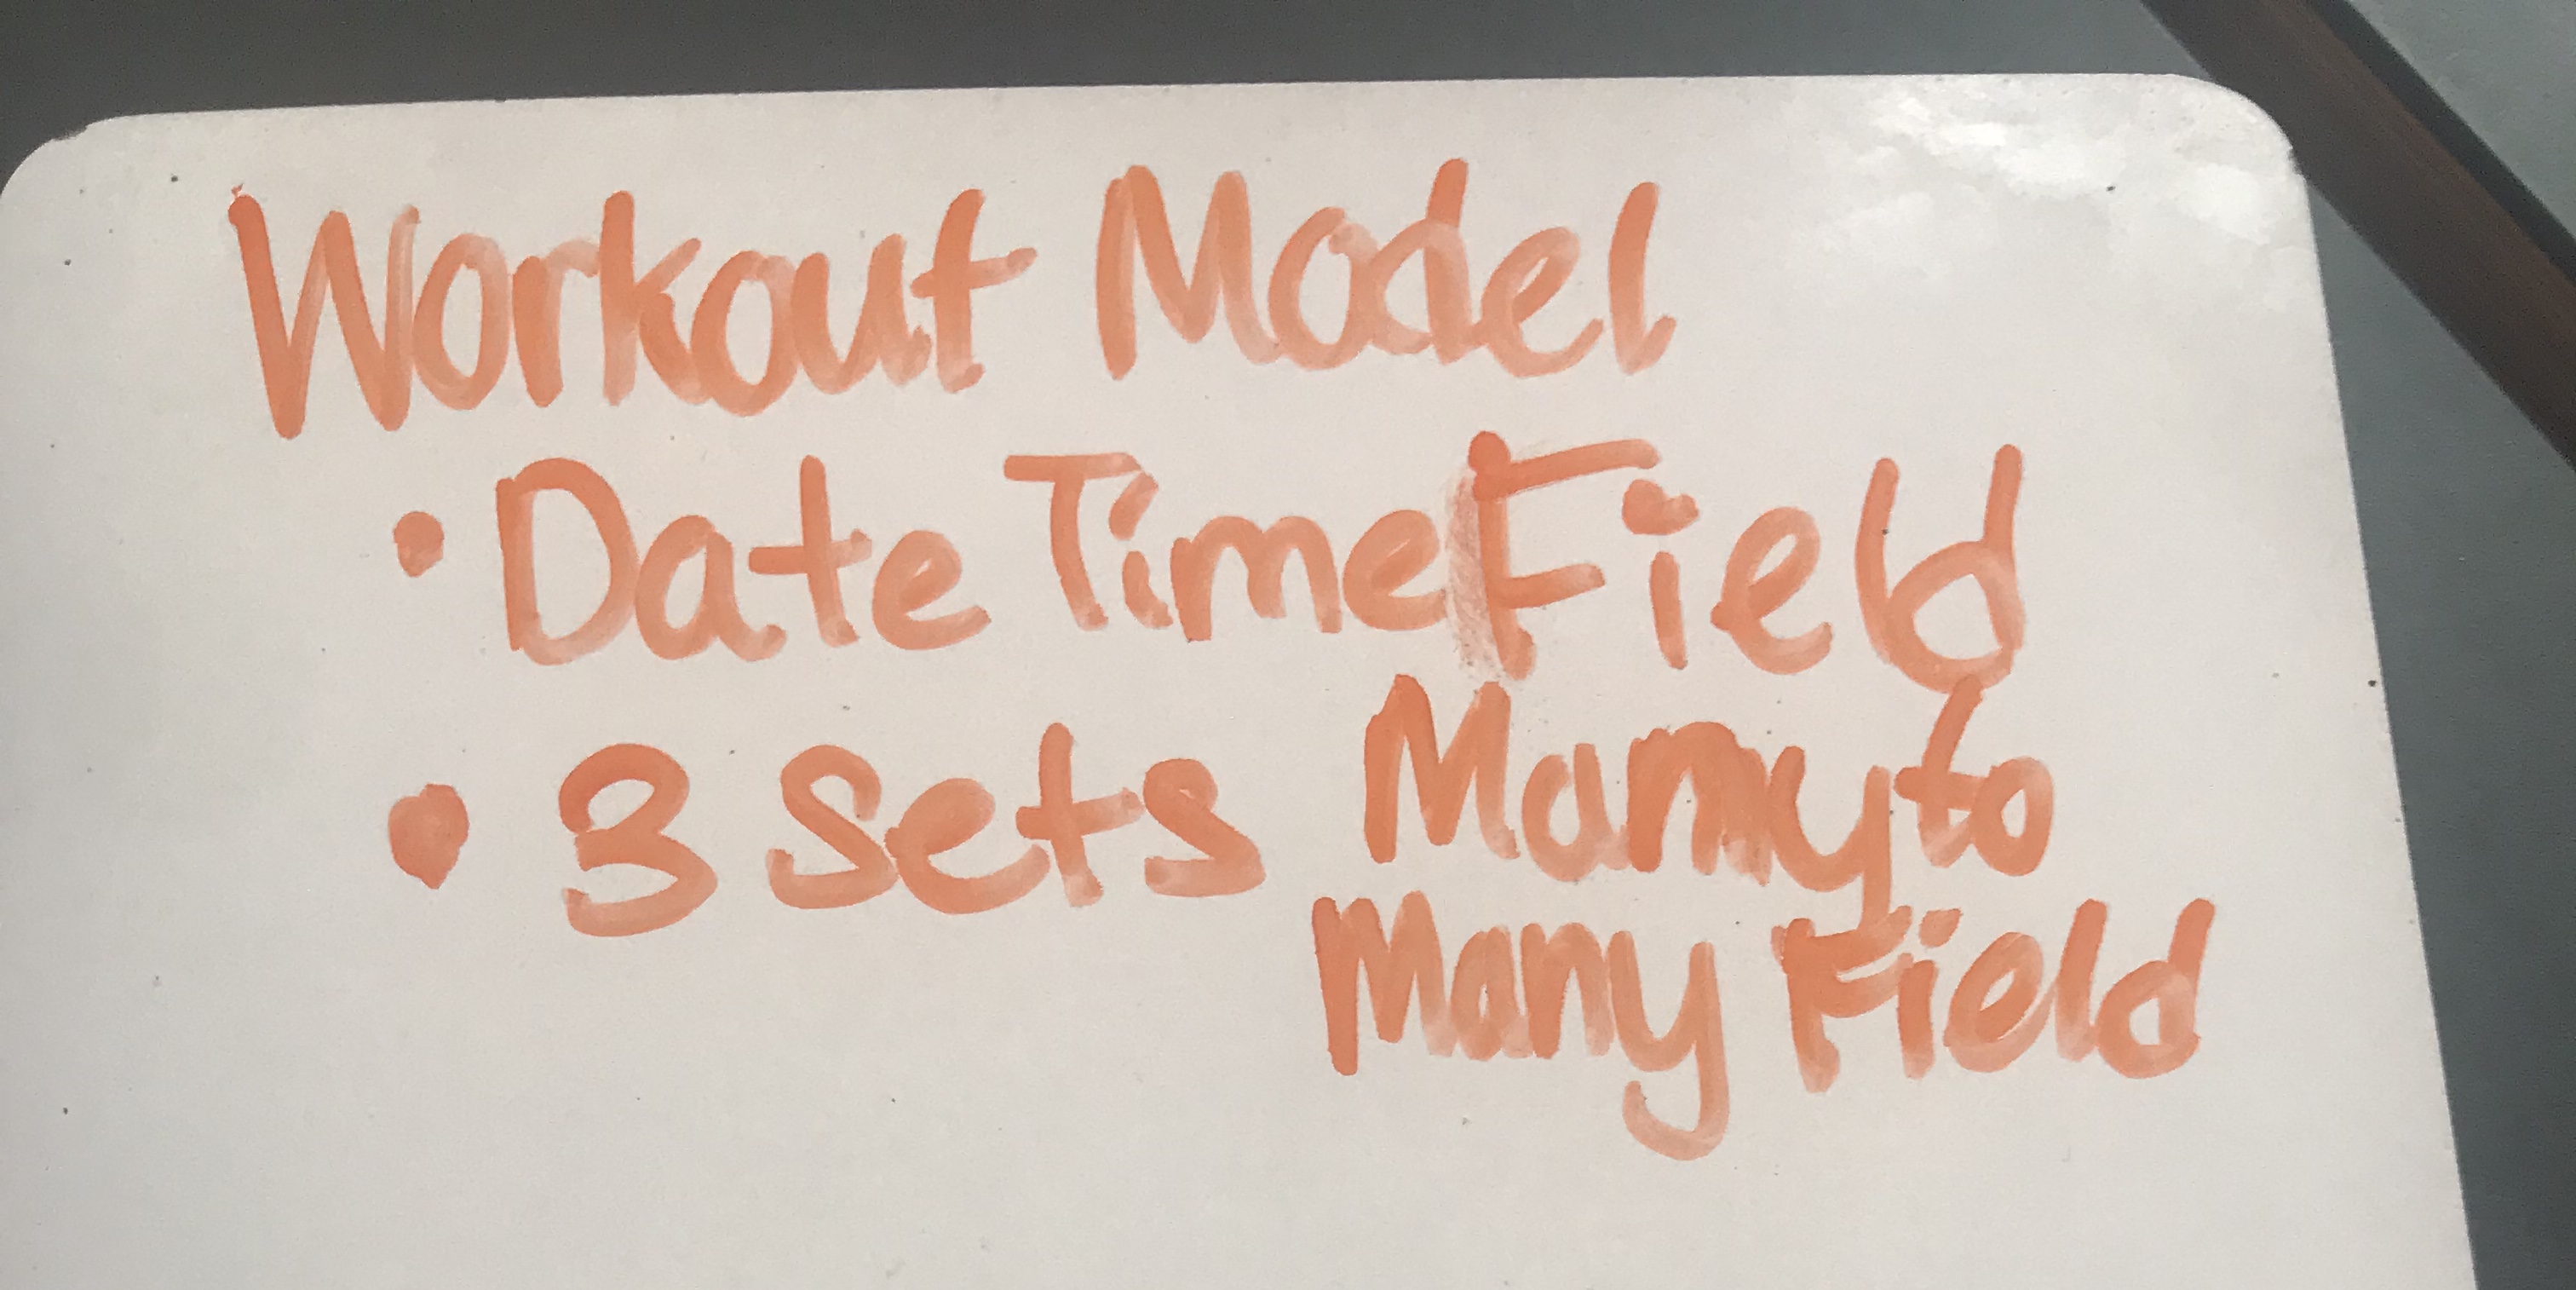 Workout Model
• Date TimeField
• 3 Sets Manyto
Many Field